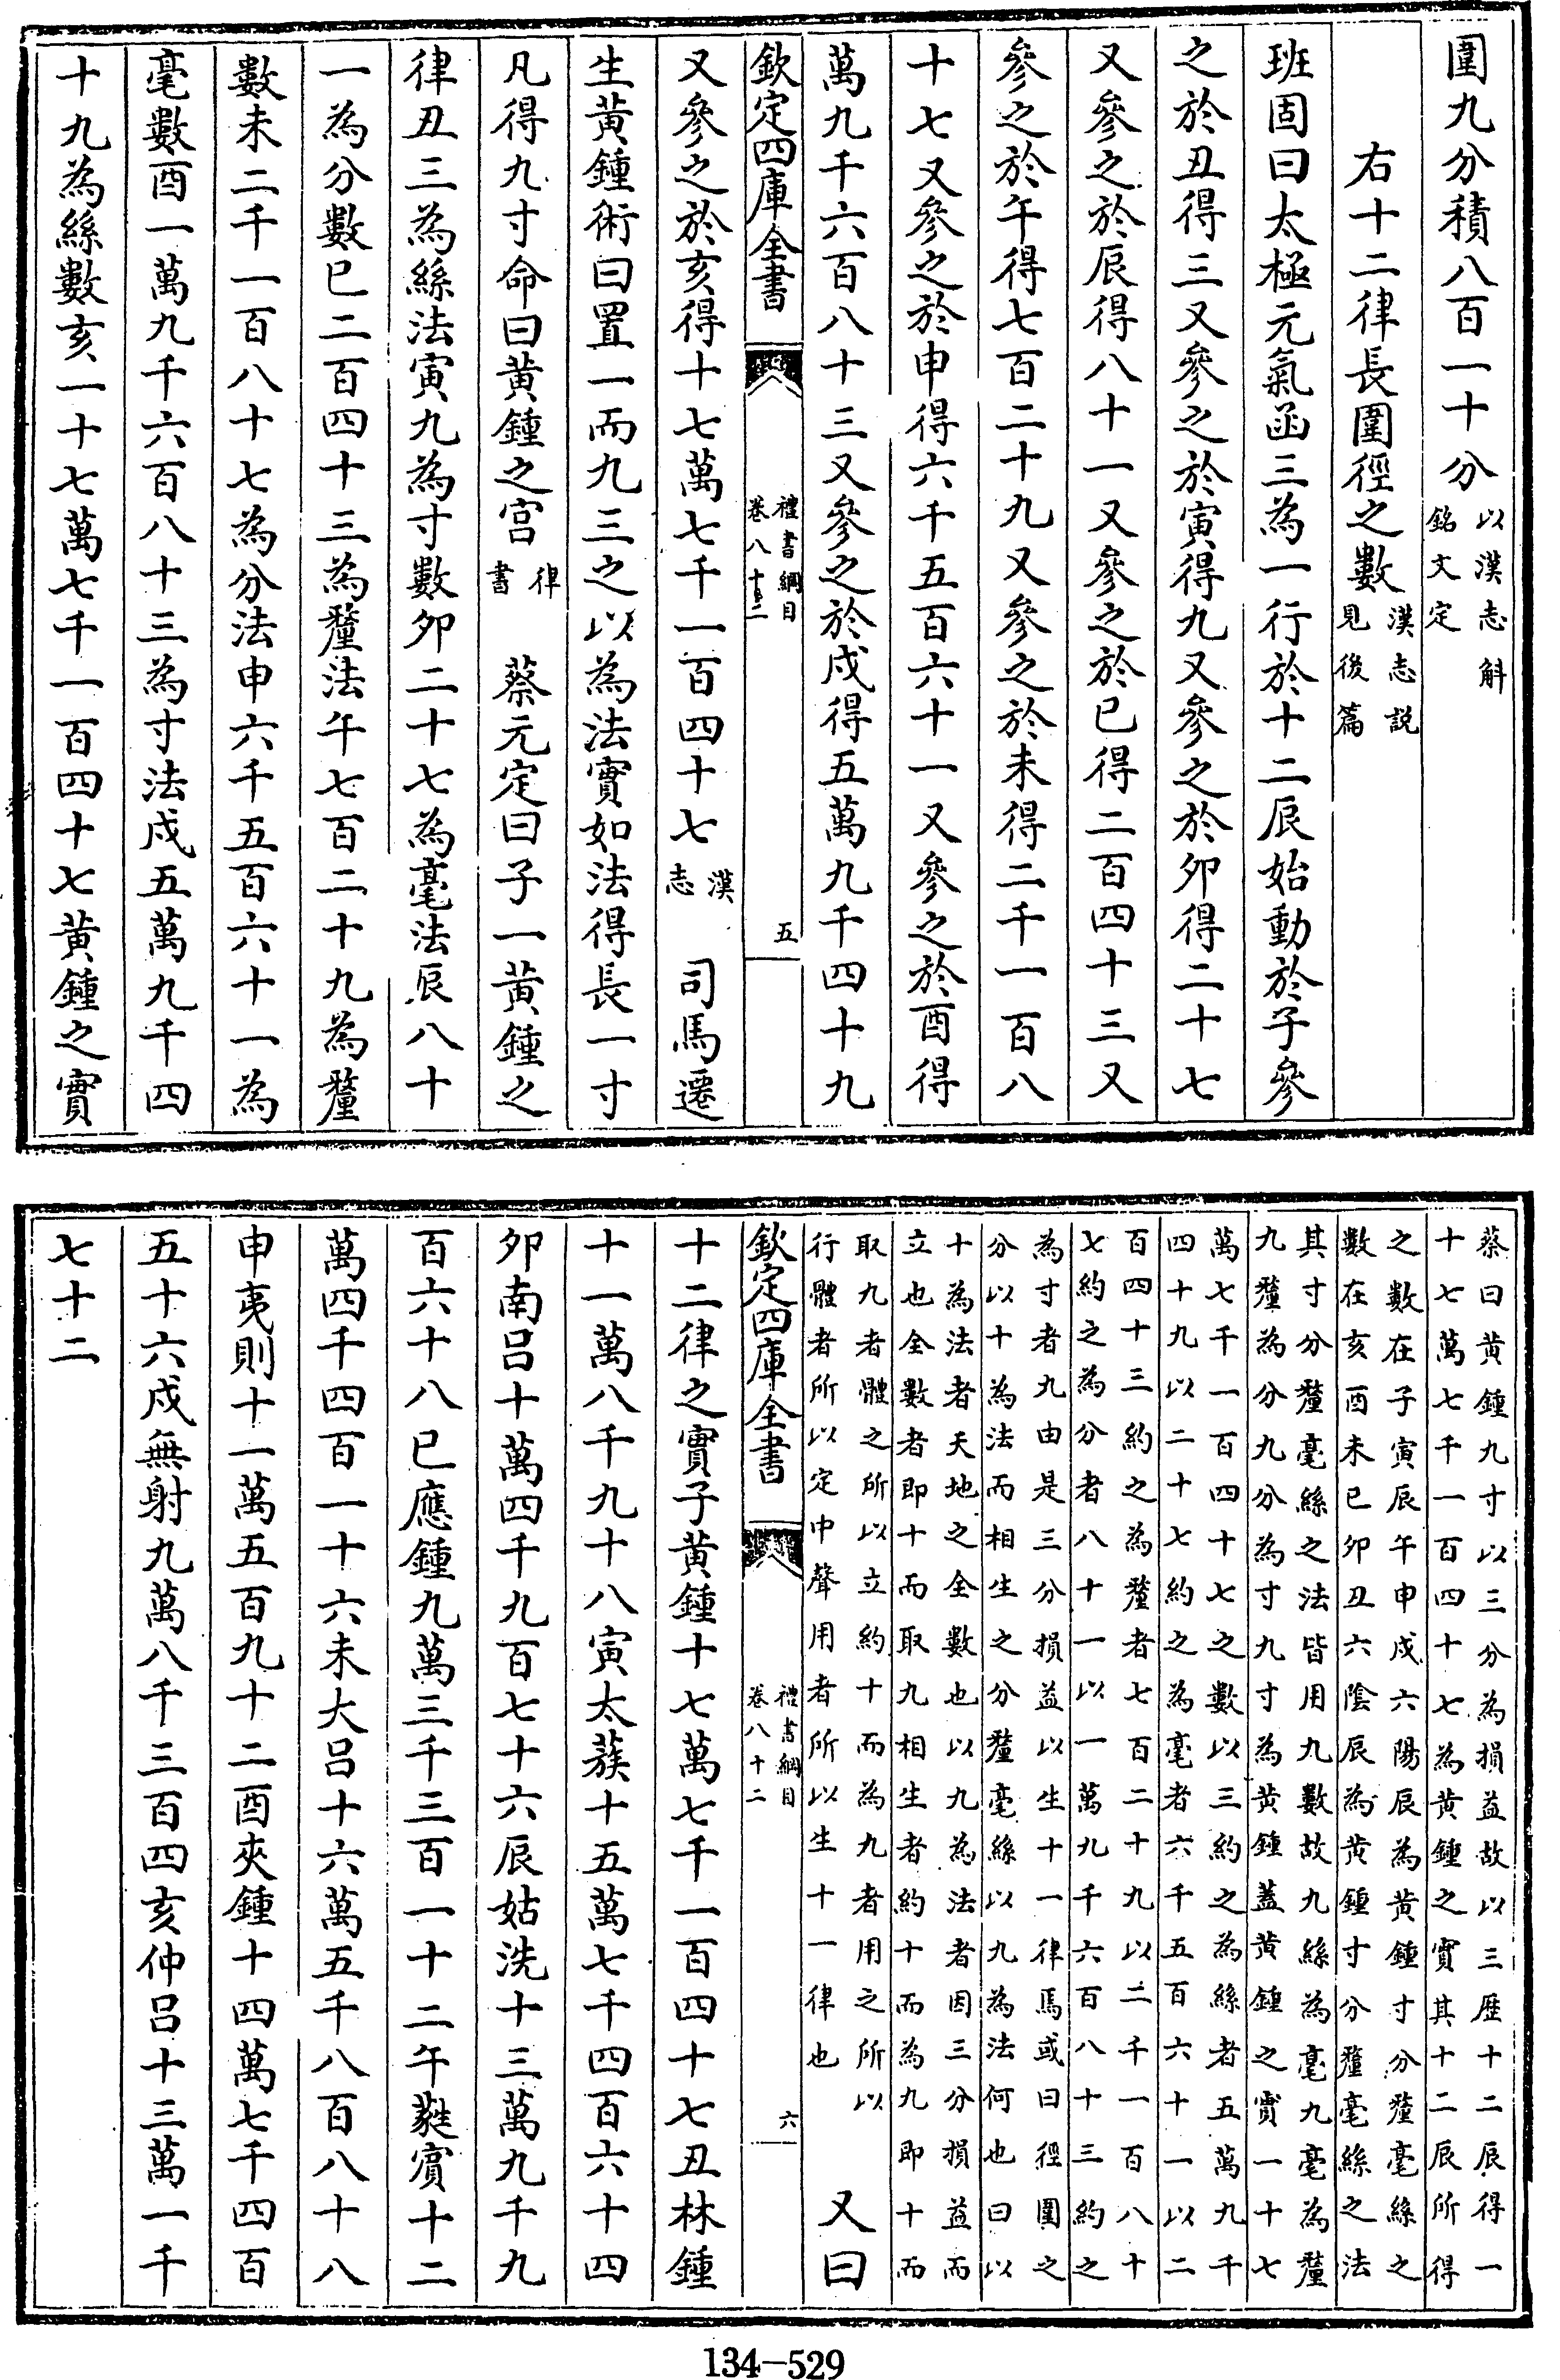 圍九分積八百一十分以漢志斛銘文定
右十二律長圍徑之數漢志説見後篇
班固曰太極元氣函三為一行於十二辰始動於子參
之於丑得三又參之於寅得九又參之於卯得二十七
又參之於辰得八十一又參之於巳得二百四十三又
參之於午得七百二十九又參之於未得二千一百八
十七又參之於申得六千五百六十一又參之於酉得
萬九千六百八十三又參之於戌得五萬九千四十九
欽定四庫全書 禮書綱目卷八十二 五
又參之於亥得十七萬七千一百四十七漢志 司馬遷
生黃鍾術曰置一而九三之以為法實如法得長一寸
凡得九寸命曰黃鍾之宮律書 蔡元定曰子一黃鍾之
律丑三為絲法寅九為寸數卯二十七為毫法辰八十
一為分數巳二百四十三為釐法午七百二十九為釐
數未二千一百八十七為分法申六千五百六十一為
毫數酉一萬九千六百八十三為寸法戌五萬九千四
十九為絲數亥一十七萬七千一百四十七黃鍾之實
蔡曰黃鍾九寸以三分為損益故以三歷十二辰得一
十七萬七千一百四十七為黃鍾之實其十二辰所得
之數在子寅辰午申戌六陽辰為黃鍾寸分釐毫絲之
數在亥酉未巳卯丑六陰辰為黃鍾寸分釐毫絲之法
其寸分釐毫絲之法皆用九數故九絲為毫九毫為釐
九釐為分九分為寸九寸為黃鍾蓋黃鍾之實一十七
萬七千一百四十七之數以三約之為絲者五萬九千
四十九以二十七約之為毫者六千五百六十一以二
百四十三約之為釐者七百二十九以二千一百八十
七約之為分者八十一以一萬九千六百八十三約之
為寸者九由是三分損益以生十一律焉或曰徑圍之
分以十為法而相生之分釐毫絲以九為法何也曰以
十為法者天地之全數也以九為法者因三分損益而
立也全數者即十而取九相生者約十而為九即十而
取九者體之所以立約十而為九者用之所以
行體者所以定中聲用者所以生十一律也 又曰
欽定四庫全書 禮書綱目卷八十二 六
十二律之實子黃鍾十七萬七千一百四十七丑林鍾
十一萬八千九十八寅太蔟十五萬七千四百六十四
卯南呂十萬四千九百七十六辰姑洗十三萬九千九
百六十八巳應鍾九萬三千三百一十二午蕤賓十二
萬四千四百一十六未大呂十六萬五千八百八十八
申夷則十一萬五百九十二酉夾鍾十四萬七千四百
五十六戌無射九萬八千三百四亥仲呂十三萬一千
七十二
134-529